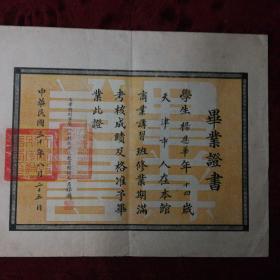 畢業證書
學生楊恩華年十四歲
天津市人在本館
商業講習班修業期滿
考核成績及格准予畢
業此證
中華民國三十年八月二十五日